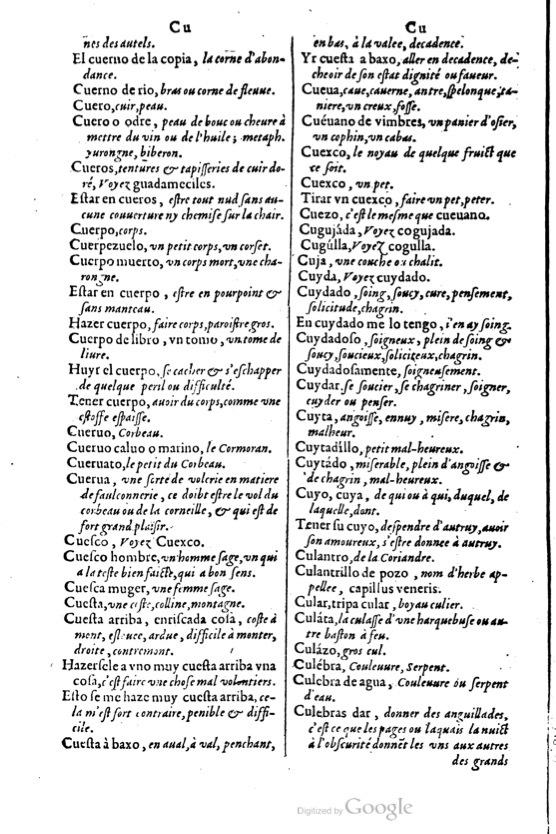 Cu
nes des autels.
El cuerno de la copia, la corne d'abon-
dance.
Cuerno de rio, bras ou corne de fleuue.
Cuero, cuir, peau.
Cuero o odre, peau de bouc ou cheure à
mettre du vin ou de l'huile; metaph.
yurongne, biberon.
Cueros, tentures & tapisseries de cuir do-
ré, Voyez guadameciles.
Estar en cueros, estre tout nud sans au-
cune couuerture ny chemise sur la chair.
Cuerpo, corps.
Cuerpezuelo, vn petit corps, vn corset.
Cuerpo muerto, vn corps mort, vne cha-
rongne.
Estar en cuerpo, estre en pourpoint &
sans manteau.
Hazer cuerpo, faire corps, paroistre gros.
Cuerpo de libro, vn tomo, vn tome de
liure.
Huyr el cuerpo, se cacher & s'eschapper
de quelque peril ou difficulté.
Tener cuerpo, auoir du corps, comme vne
estoffe espaisse.
Cueruo, Corbeau.
Cueruo caluo o marino, le Cormoran.
Cueruato, le petit du Corbeau.
Cuerua, vne sorte de volerie en matiere
de faulconnerie, ce doibt estre le vol du
corbeau ou de la corneille, & qui est de
fort grand plaisir.
Cuesco, Voyez Cuexco.
Cuesco hombre, vn homme sage, vn qui
a la teste bien faicte, qui a bon sens.
Cuesca muger, vne femme sage.
Cuesta, vne coste, colline, montagne.
Cuesta arriba, enriscada cosa, coste à
mont, esleuee, ardue, difficile à monter,
droite, contremont.
Hazersele a vno muy cuesta arriba vna
cosa, c'est faire vne chose mal volontiers.
Esto se me haze muy cuesta arriba, ce-
la m'est fort contraire, penible & diffi-
cile.
Cuesta à baxo, en aual, à val, penchant,
Cu
en bas, à la valee, decadence.
Yr cuesta a baxo, aller en decadence, de-
cheoir de son estat dignité ou faueur.
Cueua, caue, cauerne, antre, spelonque, ta-
niere, vn creux, fosse.
Cuéuano de vimbres, vn panier d'osier,
vn cophin, vn cabas.
Cuexco, le noyau de quelque fruict que
ce soit.
Cuexco, vn pet.
Tirar vn cuexco, faire vn pet, peter.
Cuezo, c'est le mesme que cueuano.
Cugujáda, Voyez cogujada.
Cugúlla, Voyez cogulla.
Cuja, vne couche ou chalit.
Cuyda, Voyez cuydado.
Cuydado, soing, soucy, cure, pensement,
solicitude, chagrin.
En cuydado me lo tengo, i'en ay soing.
Cuydadoso, soigneux, plein de soing &
soucy, soucieux, soliciteux, chagrin.
Cuydadosamente, soigneusement.
Cuydar, se soucier, se chagriner, soigner,
cuyder ou penser.
Cuyta, angoisse, ennuy, misere, chagrin,
malheur.
Cuytadíllo, petit mal-heureux.
Cuytádo, miserable, plein d'angoisse &
de chagrin, mal-heureux.
Cuyo, cuya, de qui ou à qui, duquel, de
laquelle, dont.
Tener su cuyo, despendre d'autruy, auoir
son amoureux, s'estre donnee à autruy.
Culantro, de la Coriandre.
Culantrillo de pozo, nom d'herbe ap-
pellee, capillus veneris.
Cular, tripa cular, boyau culier.
Culáta, la culasse d'vne harquebuse ou au-
tre baston à feu.
Culázo, gros cul.
Culébra, Couleuure, Serpent.
Culebra de agua, Couleuure ou serpent
d'eau.
Culebras dar, donner des anguillades,
c'est ce que les pages ou laquais la nuict
à l'obscurité donnēt les vns aux autres
des grands
Digitized by Google